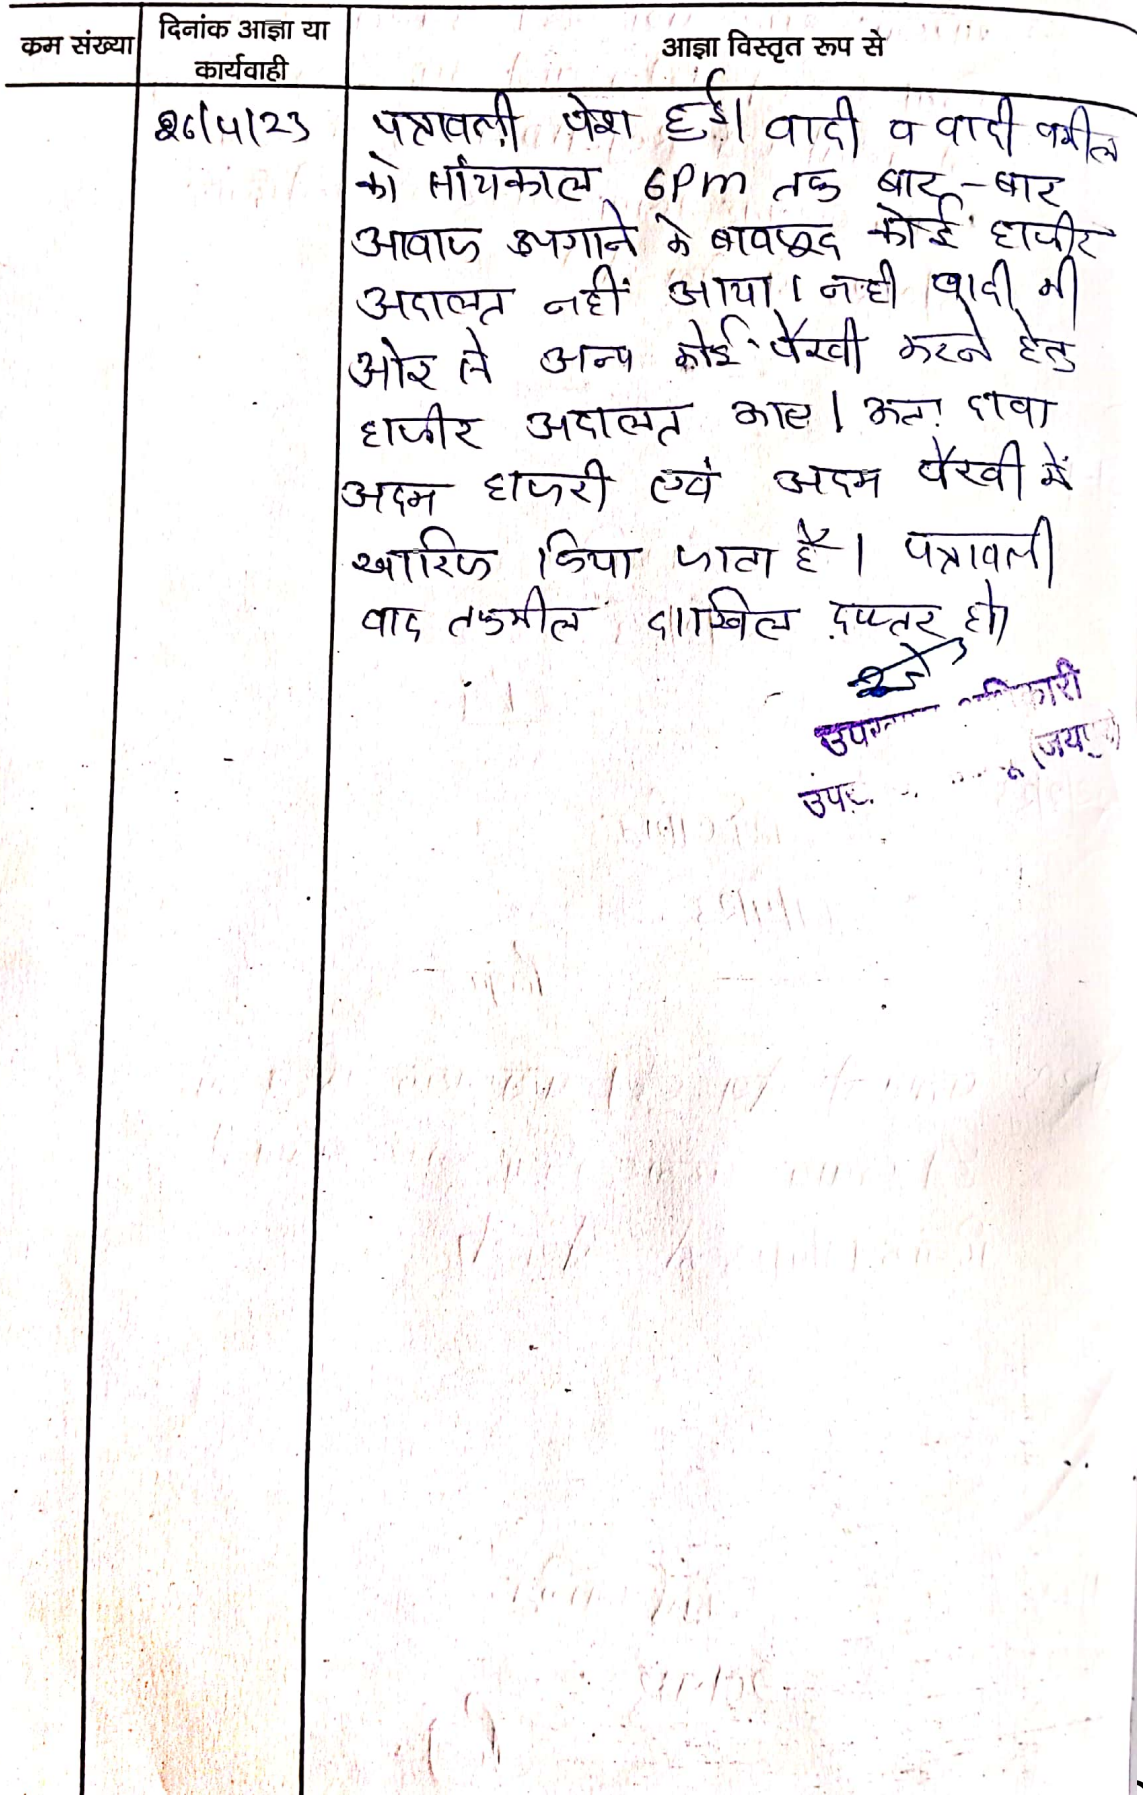 क्रम संख्या
दिनांक आज्ञा या
कार्यवाही
आज्ञा विस्तृत रूप से
26/4/23
पत्रावली पेश हुई। वादी व वादी वकील
को सांयकाल 6pm तक बार-बार
आवाज लगाने के बावजूद कोई हाजीर
अदालत नहीं आया। न ही वादी की
ओर से अन्य कोई पैरवी करने हेतु
हाजीर अदालत आए। अतः दावा
अदम हाजरी एवं अदम पैरवी में
खारिज किया जाता है। पत्रावली
बाद तकमील दाखिल दफ्तर हो।